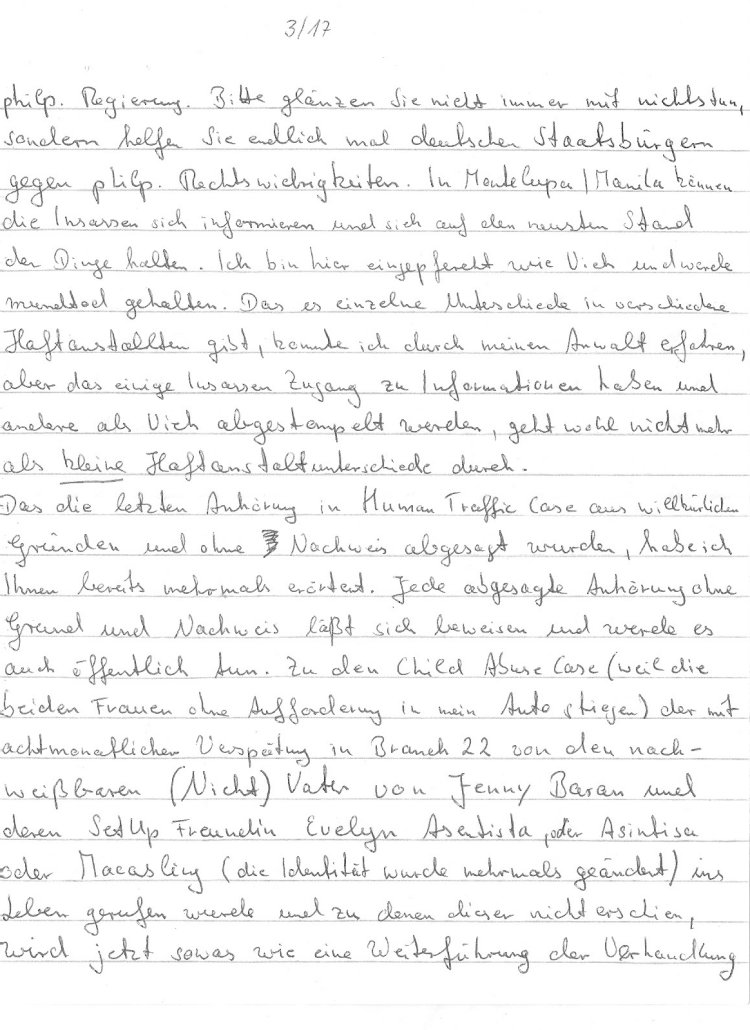 3/17
philp. Regierung. Bitte glänzen Sie nicht immer mit nichtstun,
sondern helfen Sie endlich mal deutschen Staatsbürgern
gegen philp. Rechtswidrigkeiten. In Montelupa/Manila können
die Insassen sich informieren und sich auf den neusten Stand
der Dinge halten. Ich bin hier eingepfercht wie Vieh und werde
mundtod gehalten. Das es einzelne Unterschiede in verschiedene
Haftanstallten gibt, konnte ich durch meinen Anwalt erfahren,
aber das einige Insassen Zugang zu Informationen haben und
andere als Vieh abgestempelt werden, geht wohl nicht mehr
als kleine Haftanstaltunterschiede durch.
Das die letzten Anhörung in Human Traffic Case aus willkürlichen
Gründen und ohne Nachweis abgesagt wurden, habe ich
Ihnen bereits mehrmals erörtert. Jede abgesagte Anhörung ohne
Grund und Nachweis läßt sich beweisen und werde es
auch öffentlich tun. Zu den Child Abuse Case (weil die
beiden Frauen ohne Aufforderung in mein Auto stiegen) der mit
achtmonatlicher Verspätung in Branch 22 von den nach-
weißbaren (Nicht) Vater von Jenny Baran und
deren SetUp Freundin Evelyn Asentista, oder Asintisa
oder Macasling (die Identität wurde mehrmals geändert) ins
Leben gerufen wurde und zu denen dieser nicht erschien,
wird jetzt sowas wie eine Weiterführung der Verhandlung